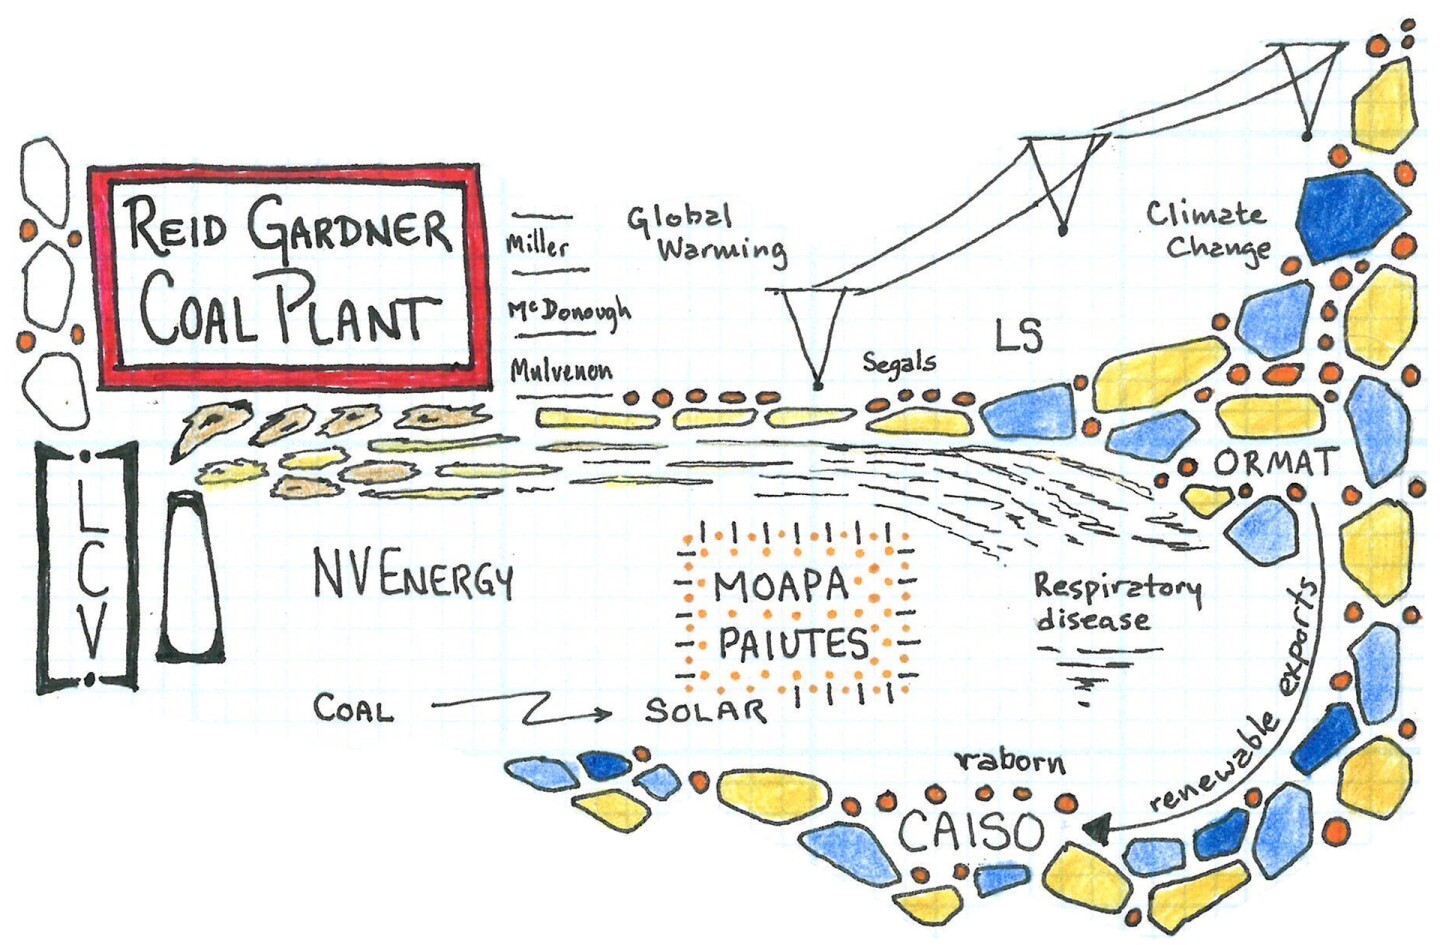 REID GARDNER
COAL PLANT
Miller
McDonough
Mulvenon
Global
Warming
Climate
Change
LS
Segals
ORMAT
LCV
NVENERGY
MOAPA
PAIUTES
Respiratory
disease
COAL
SOLAR
renewable exports
raborn
CAISO